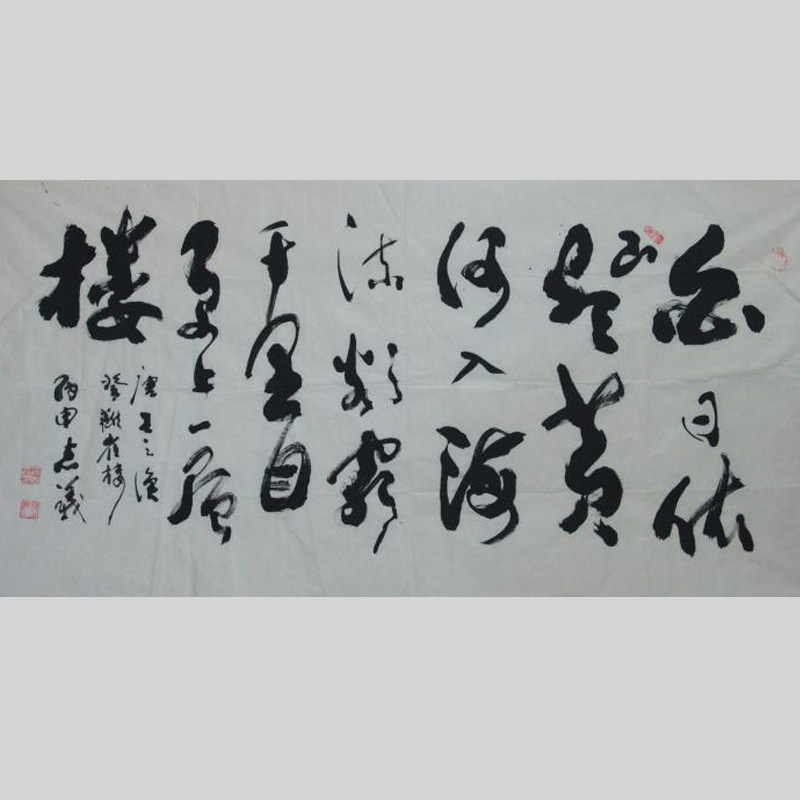 白日依
山盡黄
河入海
流欲窮
千里目
更上一層
楼
唐王之渙
登鸛雀楼
丙申志義